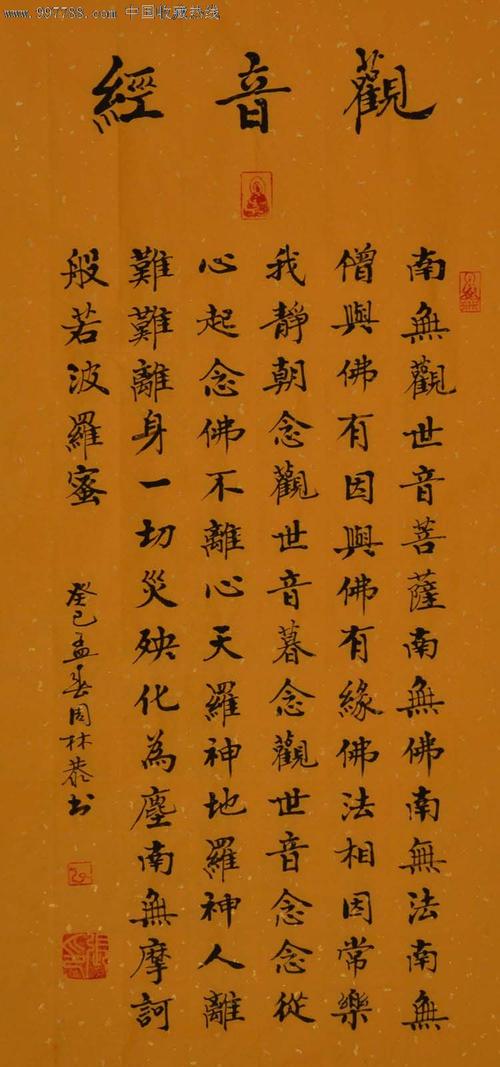 www.997788.com 中国收藏热线
觀音經
南無觀世音菩薩南無佛南無法南無
僧與佛有因與佛有緣佛法相因常樂
我靜朝念觀世音暮念觀世音念念從
心起念佛不離心天羅神地羅神人離
難難離身一切災殃化為塵南無摩訶
般若波羅蜜
癸巳孟春周林恭书